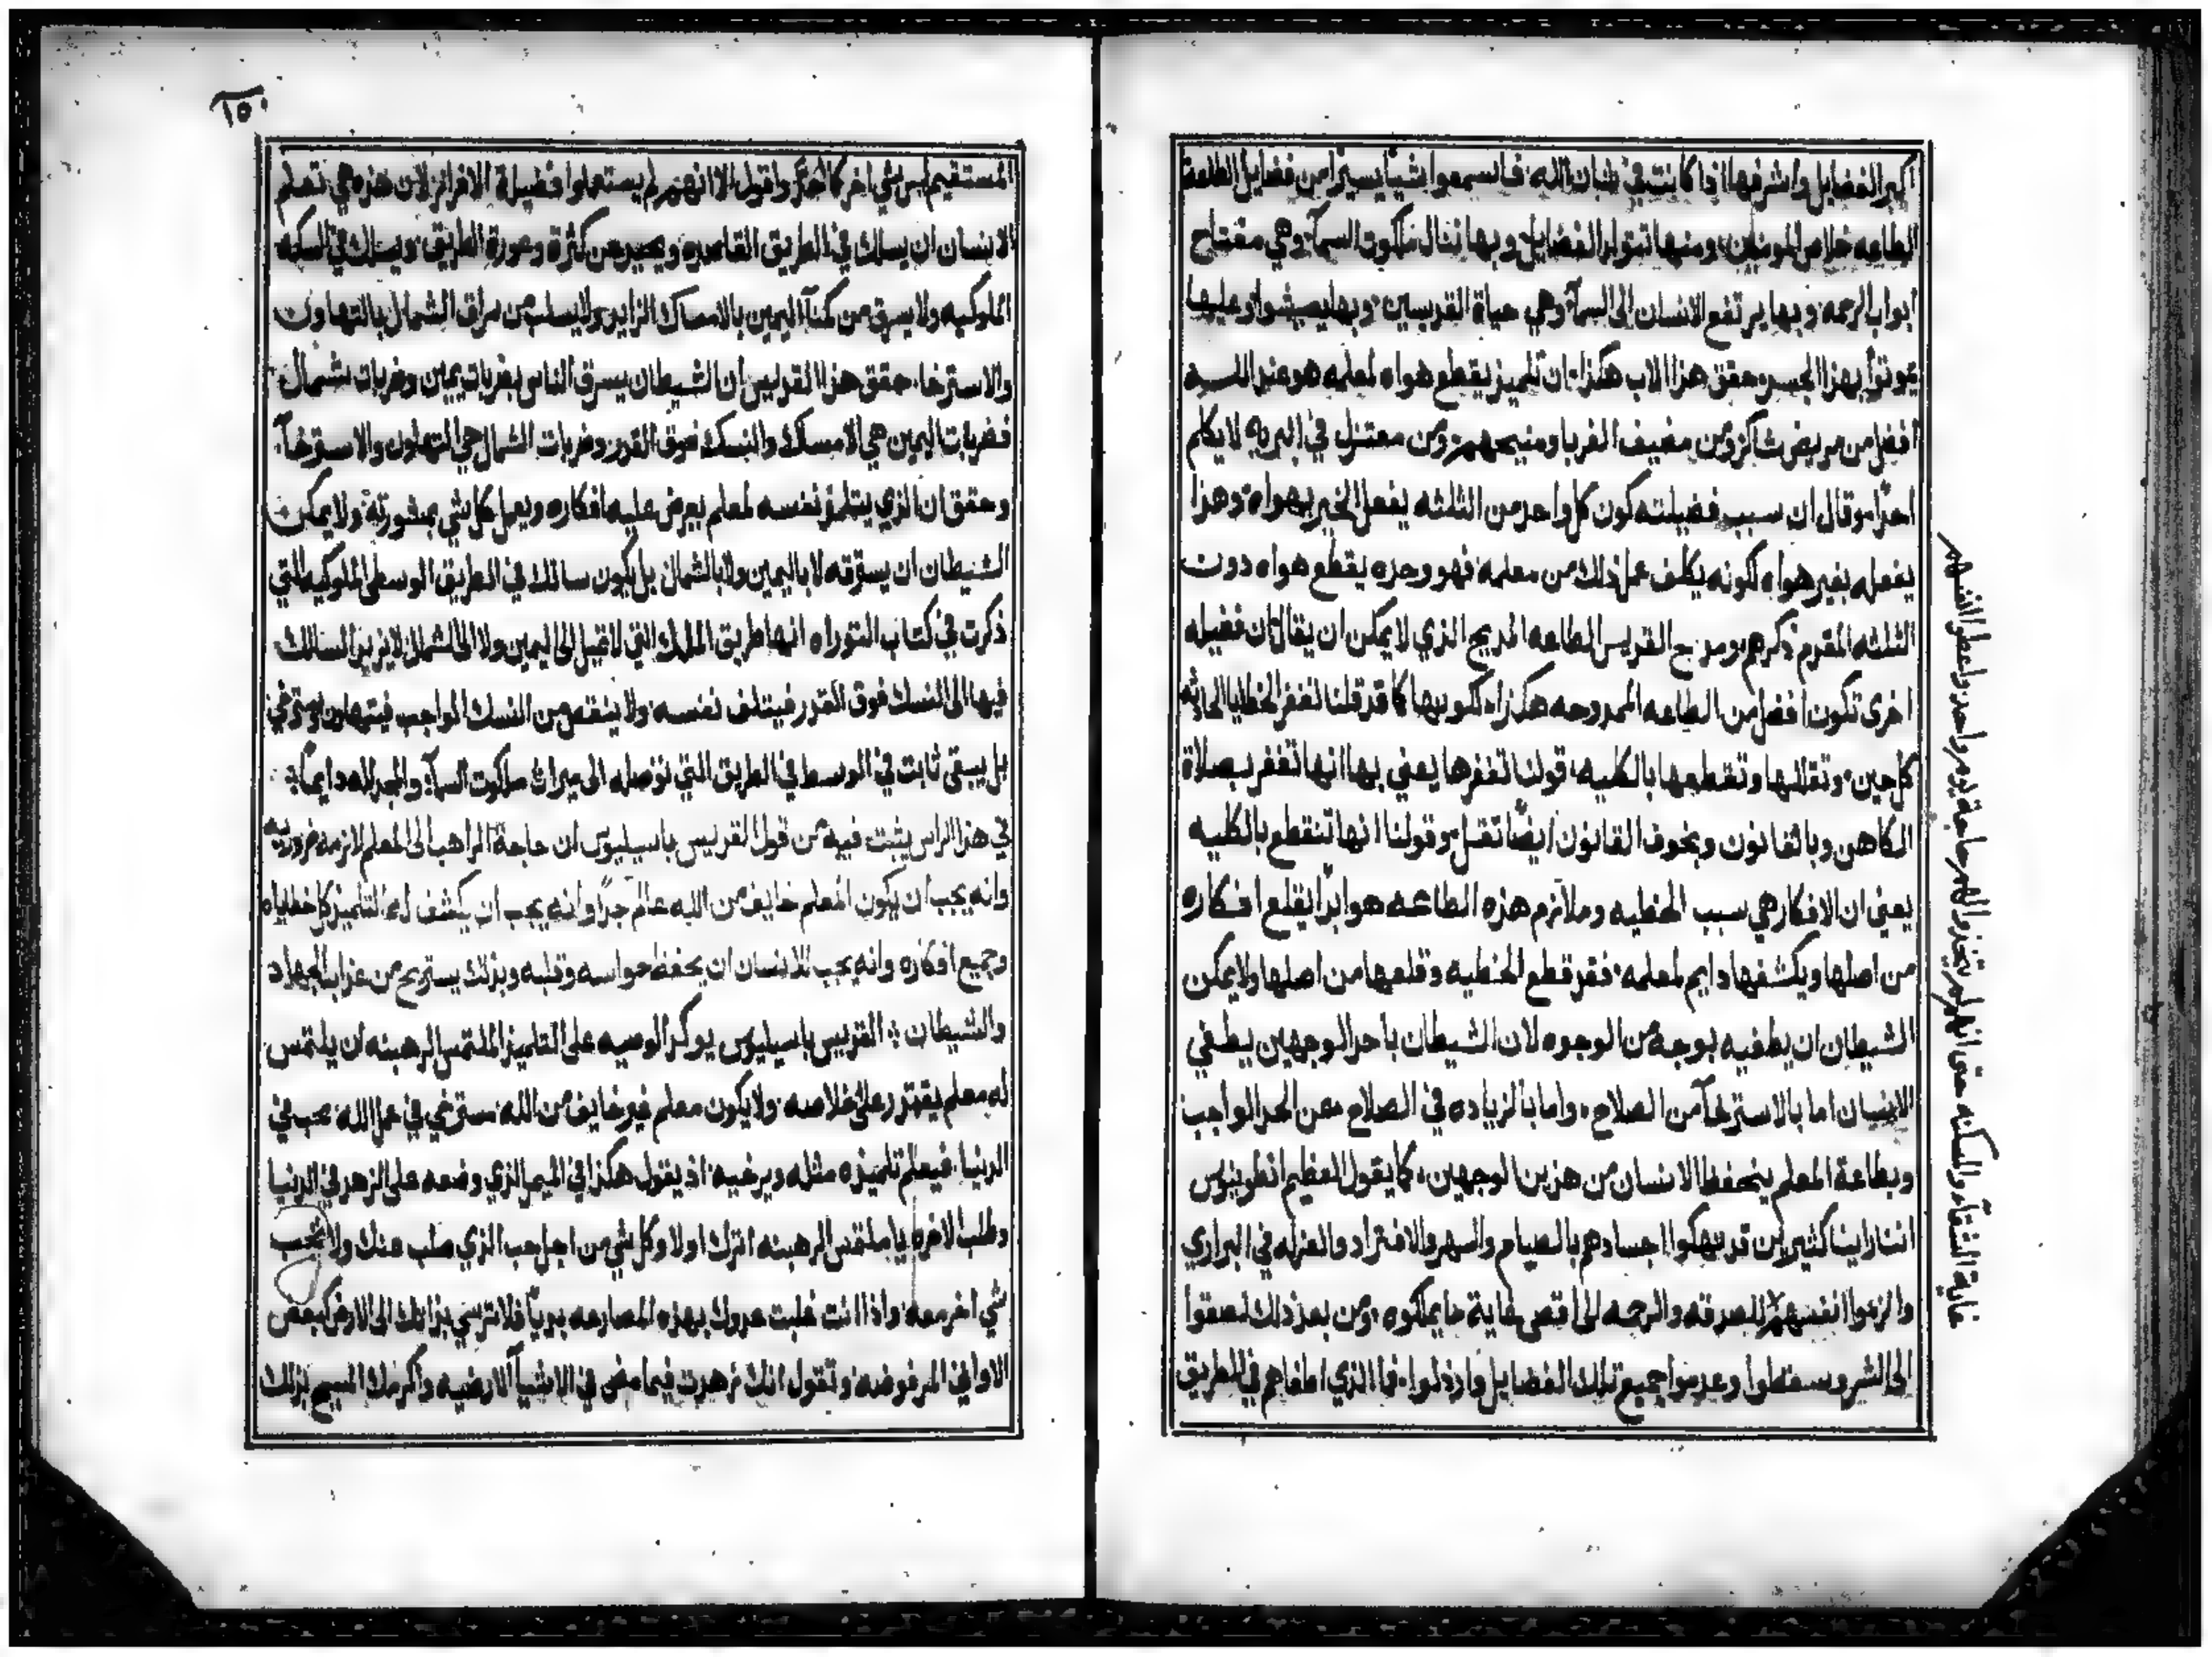 اكبر الفضايل واشرفها اذا كانت في طاعة الله فاسمعوا شيا يسيرا من فضايل الطاعة
الطاعه خلاص المومنين ومنها تتولد الفضايل وبها تنال ملكوت السمآ وهي مفتاح
ابواب الرحمه وبها يرتفع الانسان الى السمآ وهي حياة القديسين وبها يعيشوا وعليها
يموتوا بهذا الجسد حقق هذا الاب هكذا ان تلميذ يقطع هواه لمعلمه هو عند الله
افضل من مريض شاكر ومن مضيف الغربا ومنيحهم ومن معتزل في البريه لا يكلم
احدا وقال ان سبب فضيلته كون كل واحد من الثلثه يفعل الخير بهواه وهذا
يفعله بغير هواه لكونه يكلف عمل ذلك من معلمه فهو وحده يقطع هواه دون
الثلثه المقدم ذكرهم ومديح القديس لطاعه المديح الذي لا يمكن ان يقال ان فضيله
اخرى تكون افضل من الطاعه الممدوحه هكذا لكونها كما قد قلنا تغفر الخطايا الحادثه
كل حين وتقللها وتقطعها بالكليه قولنا تغفرها يعني بها انها تغفر بصلاة
الكاهن وبالقانون وبخوف القانون ايضا تقل وقولنا انها تنقطع بالكليه
يعني ان الافكار هي سبب الخطيه وملازم هذه الطاعه هو ابدا يقلع افكاره
من اصلها ويكشفها دايم لمعلمه فقد قطع الخطيه وقلعها من اصلها ولا يمكن
الشيطان ان يطغيه بوجه من الوجوه لان الشيطان باحد الوجهين يطغي
الانسان اما بالاسترخآ من الصلاح واما بالزياده في الصلاح عن الحد الواجب
وبطاعة المعلم ينحفظ الانسان من هذين الوجهين كما يقول العظيم انطونيوس
اننا راينا كثيرين قد نهكوا اجسادهم بالصيام والسهر والانفراد والعزله في البراري
والزموا انفسهم للصدقه والرحمه الى اقصى غاية ما يملكوه ومن بعد ذلك لصقوا
الى الشر وسقطوا وعدموا جميع تلك الفضايل وارذلوا فما الذي اطغاهم في الطريق
غاية الشقآء والمسكنه حتى انهم لم يتخذوا لهم حاجة يوم واحد واعطوا انفسهم
١٥٠
المستقيم ليس شي اخر كما اذكر واقول الا انهم لم يستعملوا فضيلة الافراز لان هذه هي تعلم
الانسان ان يسلك في الطريق القاصده ويحيد عن كثرة وعورة الطريق ويسلك في السكه
الملوكيه ولا يسرق من كمنآ اليمين بالامساك الزايد ولا يسلب من سراق الشمال بالتهاون
والاسترخا حقق هذا القديس ان الشيطان يسرق الناس بضربات يمين وضربات شمال
فضربات اليمين هي الامساك والنسك فوق القدر وضربات الشمال هي التهاون والاسترخآ
وحقق ان الذي يتلمذ نفسه لمعلم يعرض عليه افكاره ويعمل كل شي بمشورته ولا يمكن
الشيطان ان يسرقه لا باليمين ولا بالشمال بل يكون سالك في الطريق الوسطى الملوكيه التي
ذكرت في كتاب التوراه انها طريق الملك التي لا تميل الى اليمين ولا الى الشمال لا يزيد السالك
فيها الى النسك فوق القدر فيتلف نفسه ولا ينقص من النسك الواجب فيتهاون ويسترخي
بل يبقى ثابت في الوسط في الطريق التي توصله الى ميراث ملكوت السمآ والمجد لله دايما
في هذا الراس يثبت فيه من قول القديس باسيليوس ان حاجة الراهب الى المعلم لازمه ضروريه
وانه يجب ان يكون المعلم خايف من الله عالم جدا وانه يجب ان يكشف له التلميذ كل خطاياه
وجميع افكاره وانه يجب للانسان ان يحفظ حواسه وقلبه وبذلك يستريح من عذاب الجهاد
والشيطان القديس باسيليوس يوكد الوصيه على التلميذ الملتمس الرهبنه ان يلتمس
له معلم يقتدر على خلاصه ولا يكون معلم غير خايف من الله مسترخي في عمل الله محب في
الدنيا فيعلم تلميذه مثله ويرخيه اذ يقول هكذا في الميمر الذي وضعه على الزهد في الدنيا
وطلب الاخره يا ملتمس الرهبنه اترك اولا وكل شي من اجل حب الذي صلب عنك ولا تحب
شي اخر معه واذا انت غلبت عدوك بهذه المصارعه بديا فلا ترمي بذاتك الى الارض كبعض
الاواني المرفوضه وتقول انك زهدت فيما مضى في الاشيآ الارضيه واكرمك المسيح بذلك